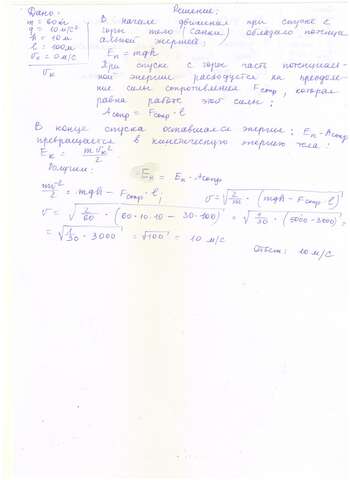 Дано:
m = 60кг
g = 10 м/с²
h = 10м
l = 100м
v₀ = 0 м/с
vк
Решение:
В начале движения при спуске с
горы тело (санки) обладало потенци
альной энергией:
Eп = mgh
При спуске с горы часть потенциаль-
ной энергии расходуется на преодоле-
ние силы сопротивления Fсопр, которая
равна работе этой силы:
Aсопр = Fсопр · l
В конце спуска оставшаяся энергия: Eп - Aсопр
превращается в кинетическую энергию тела:
Eк = mvк²/2
Получим:
Eк = Eп - Aсопр
mv²/2 = mgh - Fсопр · l; v = √(2/m · (mgh - Fсопр · l))
v = √(2/60 · (60·10·10 - 30·100)) = √(1/30 · (6000-3000)) =
= √(1/30 · 3000) = √100 = 10 м/с
Ответ: 10 м/с